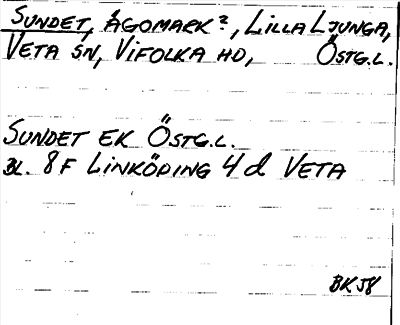 SUNDET, ÄGOMARK?, LILLA LJUNGA,
VETA SN, VIFOLKA HD, ÖSTG.L.
SUNDET EK ÖSTG.L.
BL. 8F LINKÖPING 4 d VETA
BK 58